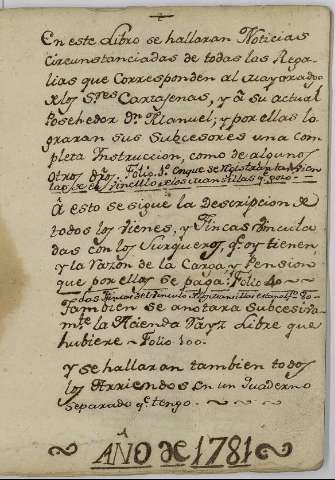 En este Libro se hallaran Noticias
circunstanciadas de todas las Rega-
lias que corresponden al Mayorado
de los S.res Cartajenas, y â su actual
Poshehedor D.n Manuel; y por ellas lo-
graran sus Subcesores una com-
pleta Instruccion, como de algunos
otros dños. Folio 1.º en que se
â esto se sigue la Descripcion de
todos los Vienes, y Fincas vincula-
das con los Surqueros, q.e oy tienen,
y la Razon de la Carga, y Pension
que por ellos se paga: Folio 40
Tambien se anotara Subcesiva-
m.te la Hacienda Rayz Libre que
hubiere - Folio 100.
Y se hallaran tambien todos
los Arriendos en un Quaderno
separado q.e tengo.
AÑO de 1781